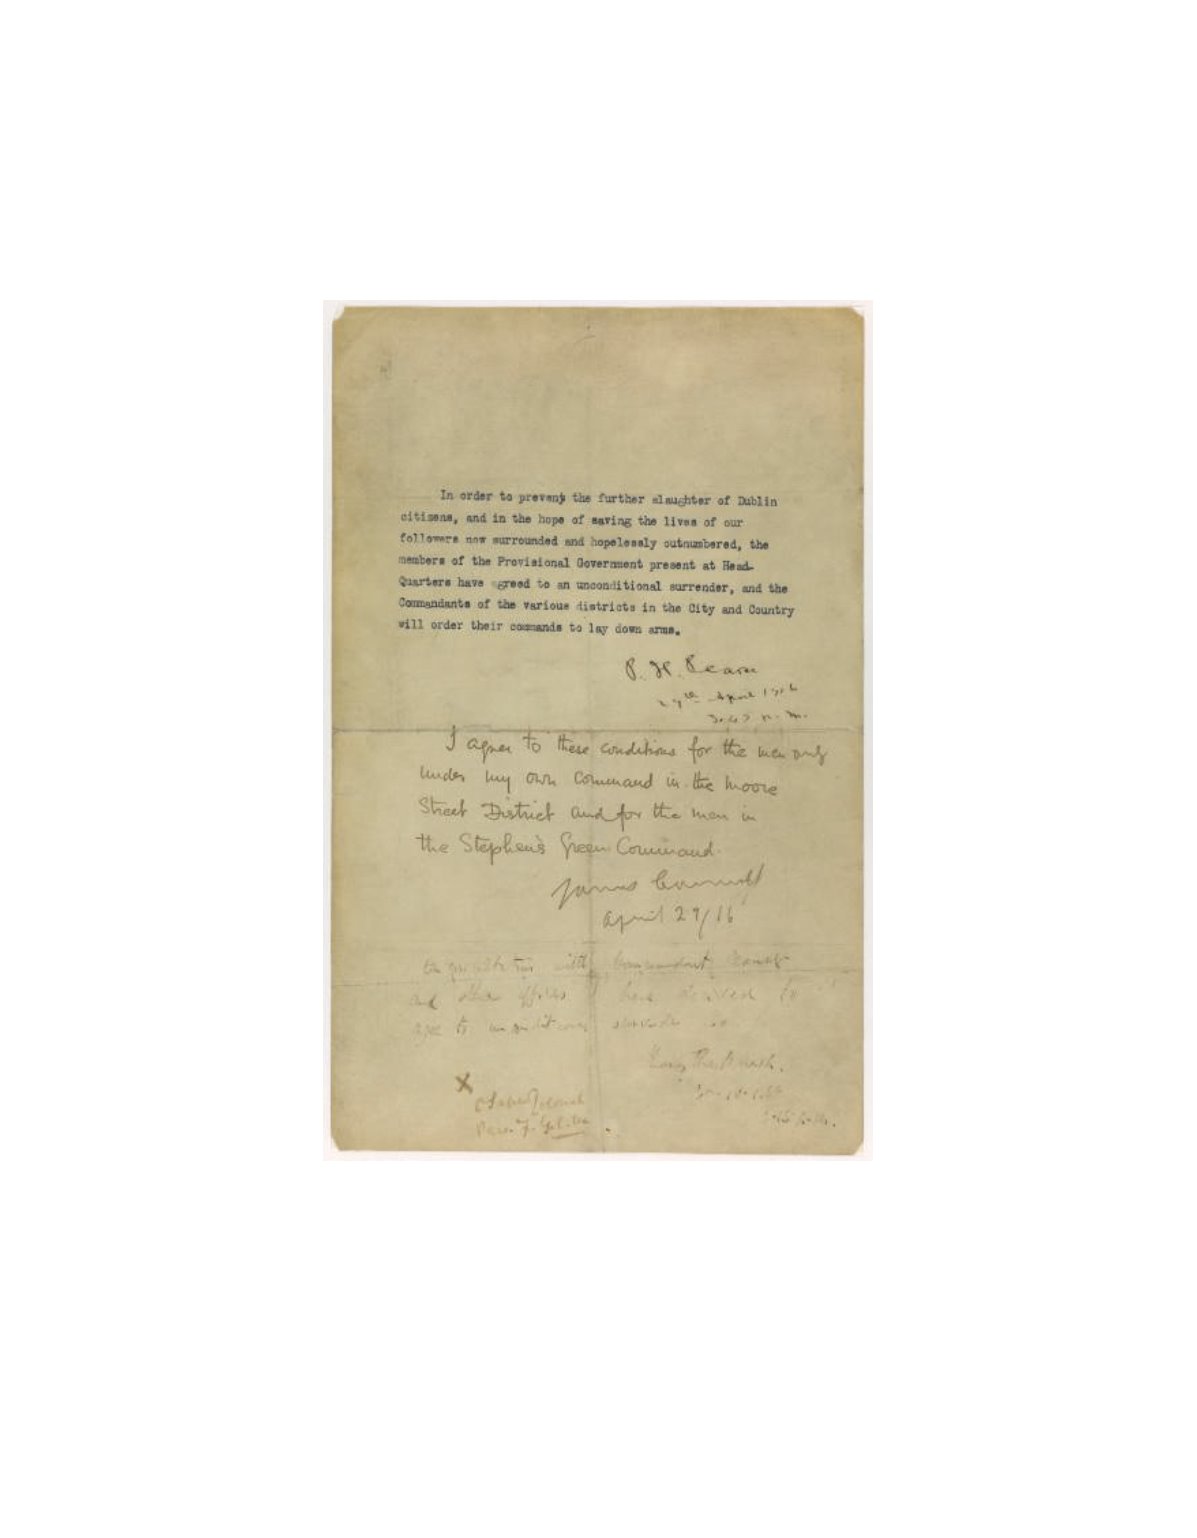 In order to prevent the further slaughter of Dublin
citizens, and in the hope of saving the lives of our
followers now surrounded and hopelessly outnumbered, the
members of the Provisional Government present at Head-
Quarters have agreed to an unconditional surrender, and the
Commandants of the various districts in the City and Country
will order their commands to lay down arms.
P. H. Pearse
29th April 1916
3.45 p.m.
I agree to these conditions for the men only
under my own command in the Moore
Street District and for the men in
the Stephen's Green Command.
James Connolly
April 29/16
with Commandant
and other officers have decided to
agree to unconditional surrender
X